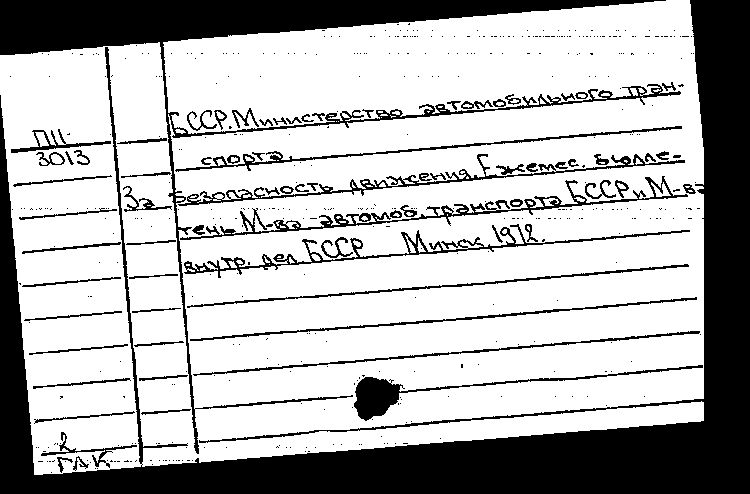 БССР. Министерство автомобильного тран-
П11
3013
спорта.
За безопасность движения. Ежемес. бюлле-
тень М-ва автомоб. транспорта БССР и М-ва
внутр. дел БССР Минск, 1972.
2
ГАК